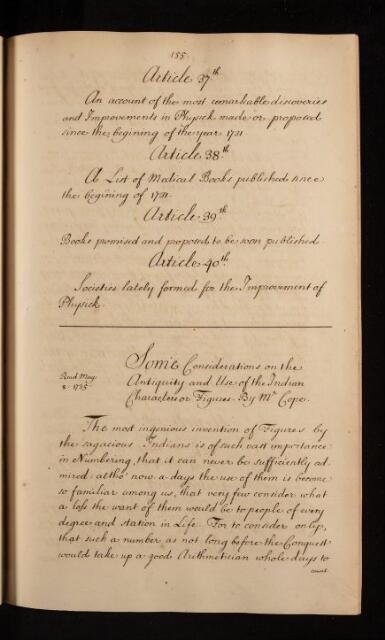 155
Article 37th
An account of the most remarkable discoveries
and Improvements in Physick made or proposed
since the begining of the year 1731
Article 38th
A List of Medical Books published since
the begining of 1731.
Article 39th
Books promised and proposed to be soon published
Article 40th
Societies lately formed for the Improvement of
Physick.
Some Considerations on the
Read May
8 1735
Antiquity and Use of the Indian
Characters or Figures. By Mr Cope.
The most ingenious invention of Figures by
the sagacious Indians is of such vast importance
in Numbering, that it can never be sufficiently ad
mired. altho' now a days the use of them is become
so familiar among us, that very few consider what
a loss the want of them would be to people of every
degree and station in Life. For to consider only,
that such a number, as not long before the Conquest
would take up a good Arithmetician whole days to
count